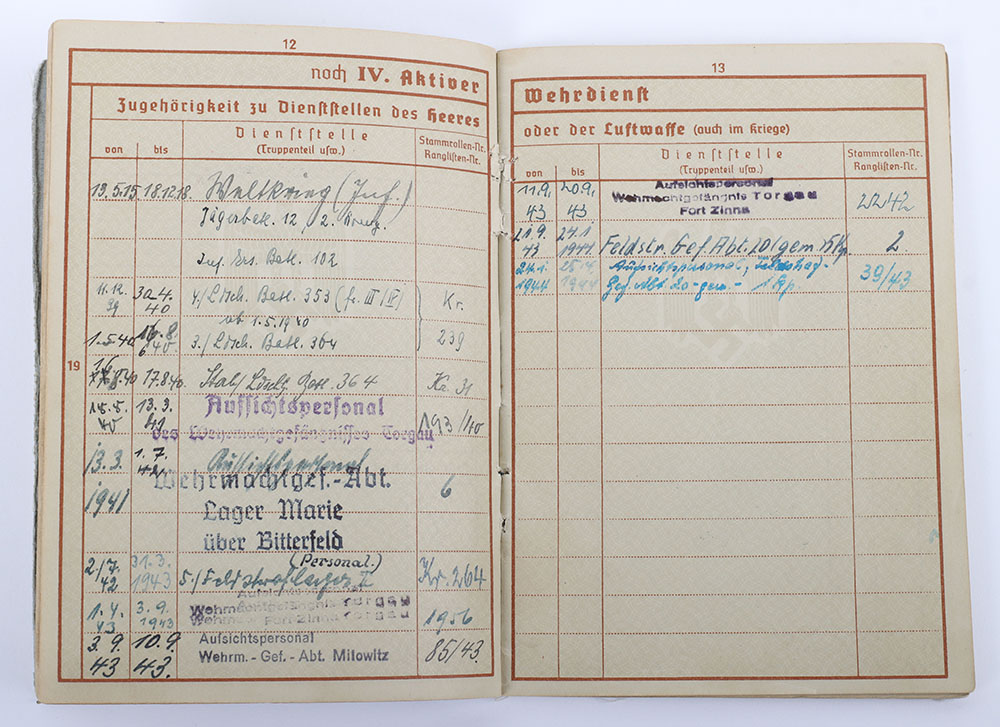 12
noch IV. Aktiver
Zugehörigkeit zu Dienststellen des Heeres
von bis
Dienststelle
(Truppenteil usw.)
Stammrollen-Nr.
Ranglisten-Nr.
13.5.15 18.12.18. Weltkrieg (Inf.)
Jägerbatl. 12, 2.
Inf. Ers. Batl. 102
11.12.39 30.4.40 4./ Lösch. Batl. 353 (fr. III/IV) Kr.
ab 1.5.1940
1.5.40 3./ Lösch. Batl. 364 239
19
17.8.40 Stab/ Batl. 364 Kr. 31
13.3.
Aufsichtspersonal
des Wehrmachtgefängnisses Torgau
193/40
13.3. 1.7.
1941
Aufsichtspersonal
Wehrmachtgef.-Abt.
6
Lager Marie
über Bitterfeld
(Personal.)
2./7.42 31.3.1943 5./ Feldstraflager II Kr. 264
1.4.43 3.9.1943
Wehrmachtgefängnis Torgau
Fort Zinna Torgau
1956
3.9.43 10.9.43.
Aufsichtspersonal
Wehrm.-Gef.-Abt. Milowitz
85/43.
13
Wehrdienst
oder der Luftwaffe (auch im Kriege)
von bis
Dienststelle
(Truppenteil usw.)
Stammrollen-Nr.
Ranglisten-Nr.
11.9.43 20.9.43.
Aufsichtspersonal
Wehrmachtgefängnis Torgau
Fort Zinna
2242
21.9.43 24.1.1944 Feldstr. Gef. Abt. 2
24.1.1944 1944 Aufsichtspersonal,
Gef. Abt. 20 39/43